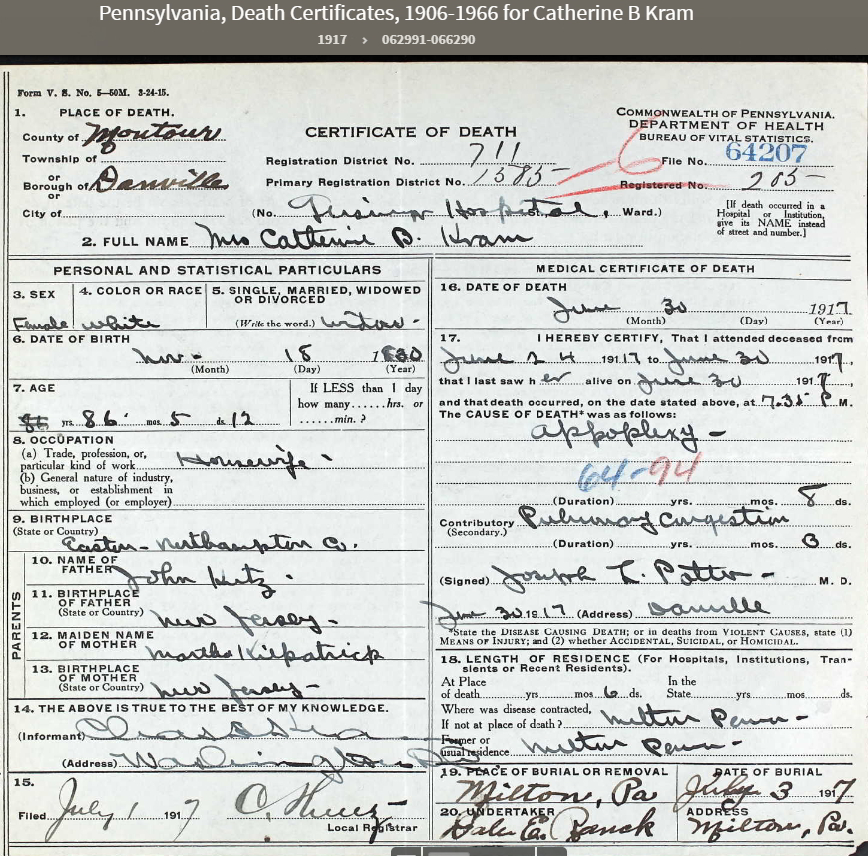 Pennsylvania, Death Certificates, 1906-1966 for Catherine B Kram
1917 › 062991-066290
Form V. S. No. 5—50M. 3-24-15.
1. PLACE OF DEATH.
County of Montour
Township of
or
Borough of Danville
or
City of
CERTIFICATE OF DEATH
Registration District No. 711
Primary Registration District No. 1585
(No. Hospital, St., Ward.)
COMMONWEALTH OF PENNSYLVANIA.
DEPARTMENT OF HEALTH
BUREAU OF VITAL STATISTICS.
File No. 64207
Registered No. 205
6
[If death occurred in a
Hospital or Institution,
give its NAME instead
of street and number.]
2. FULL NAME Mrs Catherine B. Kram
PERSONAL AND STATISTICAL PARTICULARS
3. SEX
Female
4. COLOR OR RACE
White
5. SINGLE, MARRIED, WIDOWED
OR DIVORCED
(Write the word.) widow
6. DATE OF BIRTH
Nov- 18 1830
(Month) (Day) (Year)
7. AGE
yrs. 86 mos. 5 ds. 12
If LESS than 1 day
how many......hrs. or
......min.?
8. OCCUPATION
(a) Trade, profession, or
particular kind of work Housewife
(b) General nature of industry,
business, or establishment in
which employed (or employer)
9. BIRTHPLACE
(State or Country)
Easton- Northampton Co.
PARENTS
10. NAME OF
FATHER John
11. BIRTHPLACE
OF FATHER
(State or Country) New Jersey-
12. MAIDEN NAME
OF MOTHER Martha Kilpatrick
13. BIRTHPLACE
OF MOTHER
(State or Country) New Jersey-
14. THE ABOVE IS TRUE TO THE BEST OF MY KNOWLEDGE.
(Informant)
(Address) Washington
15.
Filed July 1 1917
Local Registrar
MEDICAL CERTIFICATE OF DEATH
16. DATE OF DEATH
June 30 1917
(Month) (Day) (Year)
17. I HEREBY CERTIFY, That I attended deceased from
June 24 1917 to June 30 1917,
that I last saw her alive on June 30 1917,
and that death occurred, on the date stated above, at 7.35 P M.
The CAUSE OF DEATH* was as follows:
appoplexy -
64-94
(Duration) yrs. mos. 8 ds.
Contributory Pulmonary Congestion
(Secondary.)
(Duration) yrs. mos. 3 ds.
(Signed) Joseph L. Potter - M. D.
June 30 1917 (Address) Danville
*State the DISEASE CAUSING DEATH; or in deaths from VIOLENT CAUSES, state (1)
MEANS OF INJURY; and (2) whether ACCIDENTAL, SUICIDAL, or HOMICIDAL.
18. LENGTH OF RESIDENCE (For Hospitals, Institutions, Tran-
sients or Recent Residents).
At Place In the
of death yrs. mos. 6 ds. State yrs. mos. ds.
Where was disease contracted,
If not at place of death? Milton Penn-
Former or
usual residence Milton Penn-
19. PLACE OF BURIAL OR REMOVAL
Milton, Pa
DATE OF BURIAL
July 3 1917
20. UNDERTAKER
Ranck
ADDRESS
Milton, Pa.